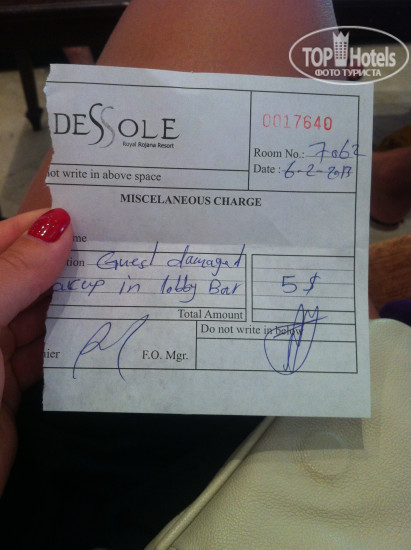 TOP Hotels
ФОТО ТУРИСТА
DESSOLE
Royal Rojana Resort
0017640
Room No.: 7062
ot write in above space
Date : 6-2-2013
MISCELANEOUS CHARGE
me
tion Guest damaged
a cup in lobby Bar
5 $
Total Amount
Do not write in below
ier
F.O. Mgr.